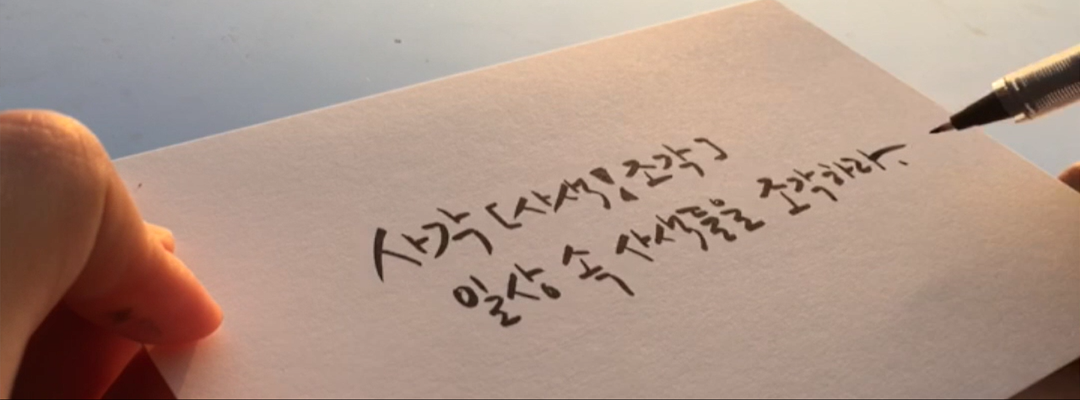 사각 [사색; 조각]
일상 속 사색들을 조각하라.